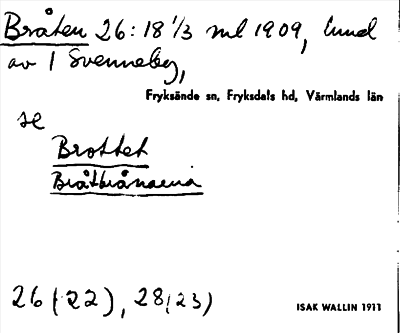 Bråten 26:18 1/3 ml 1909, Lund
av 1 Svenneby,
Fryksände sn, Fryksdals hd, Värmlands län
se
Brottet
Bråtbrånarna
26 (22), 28(23)
ISAK WALLIN 1911